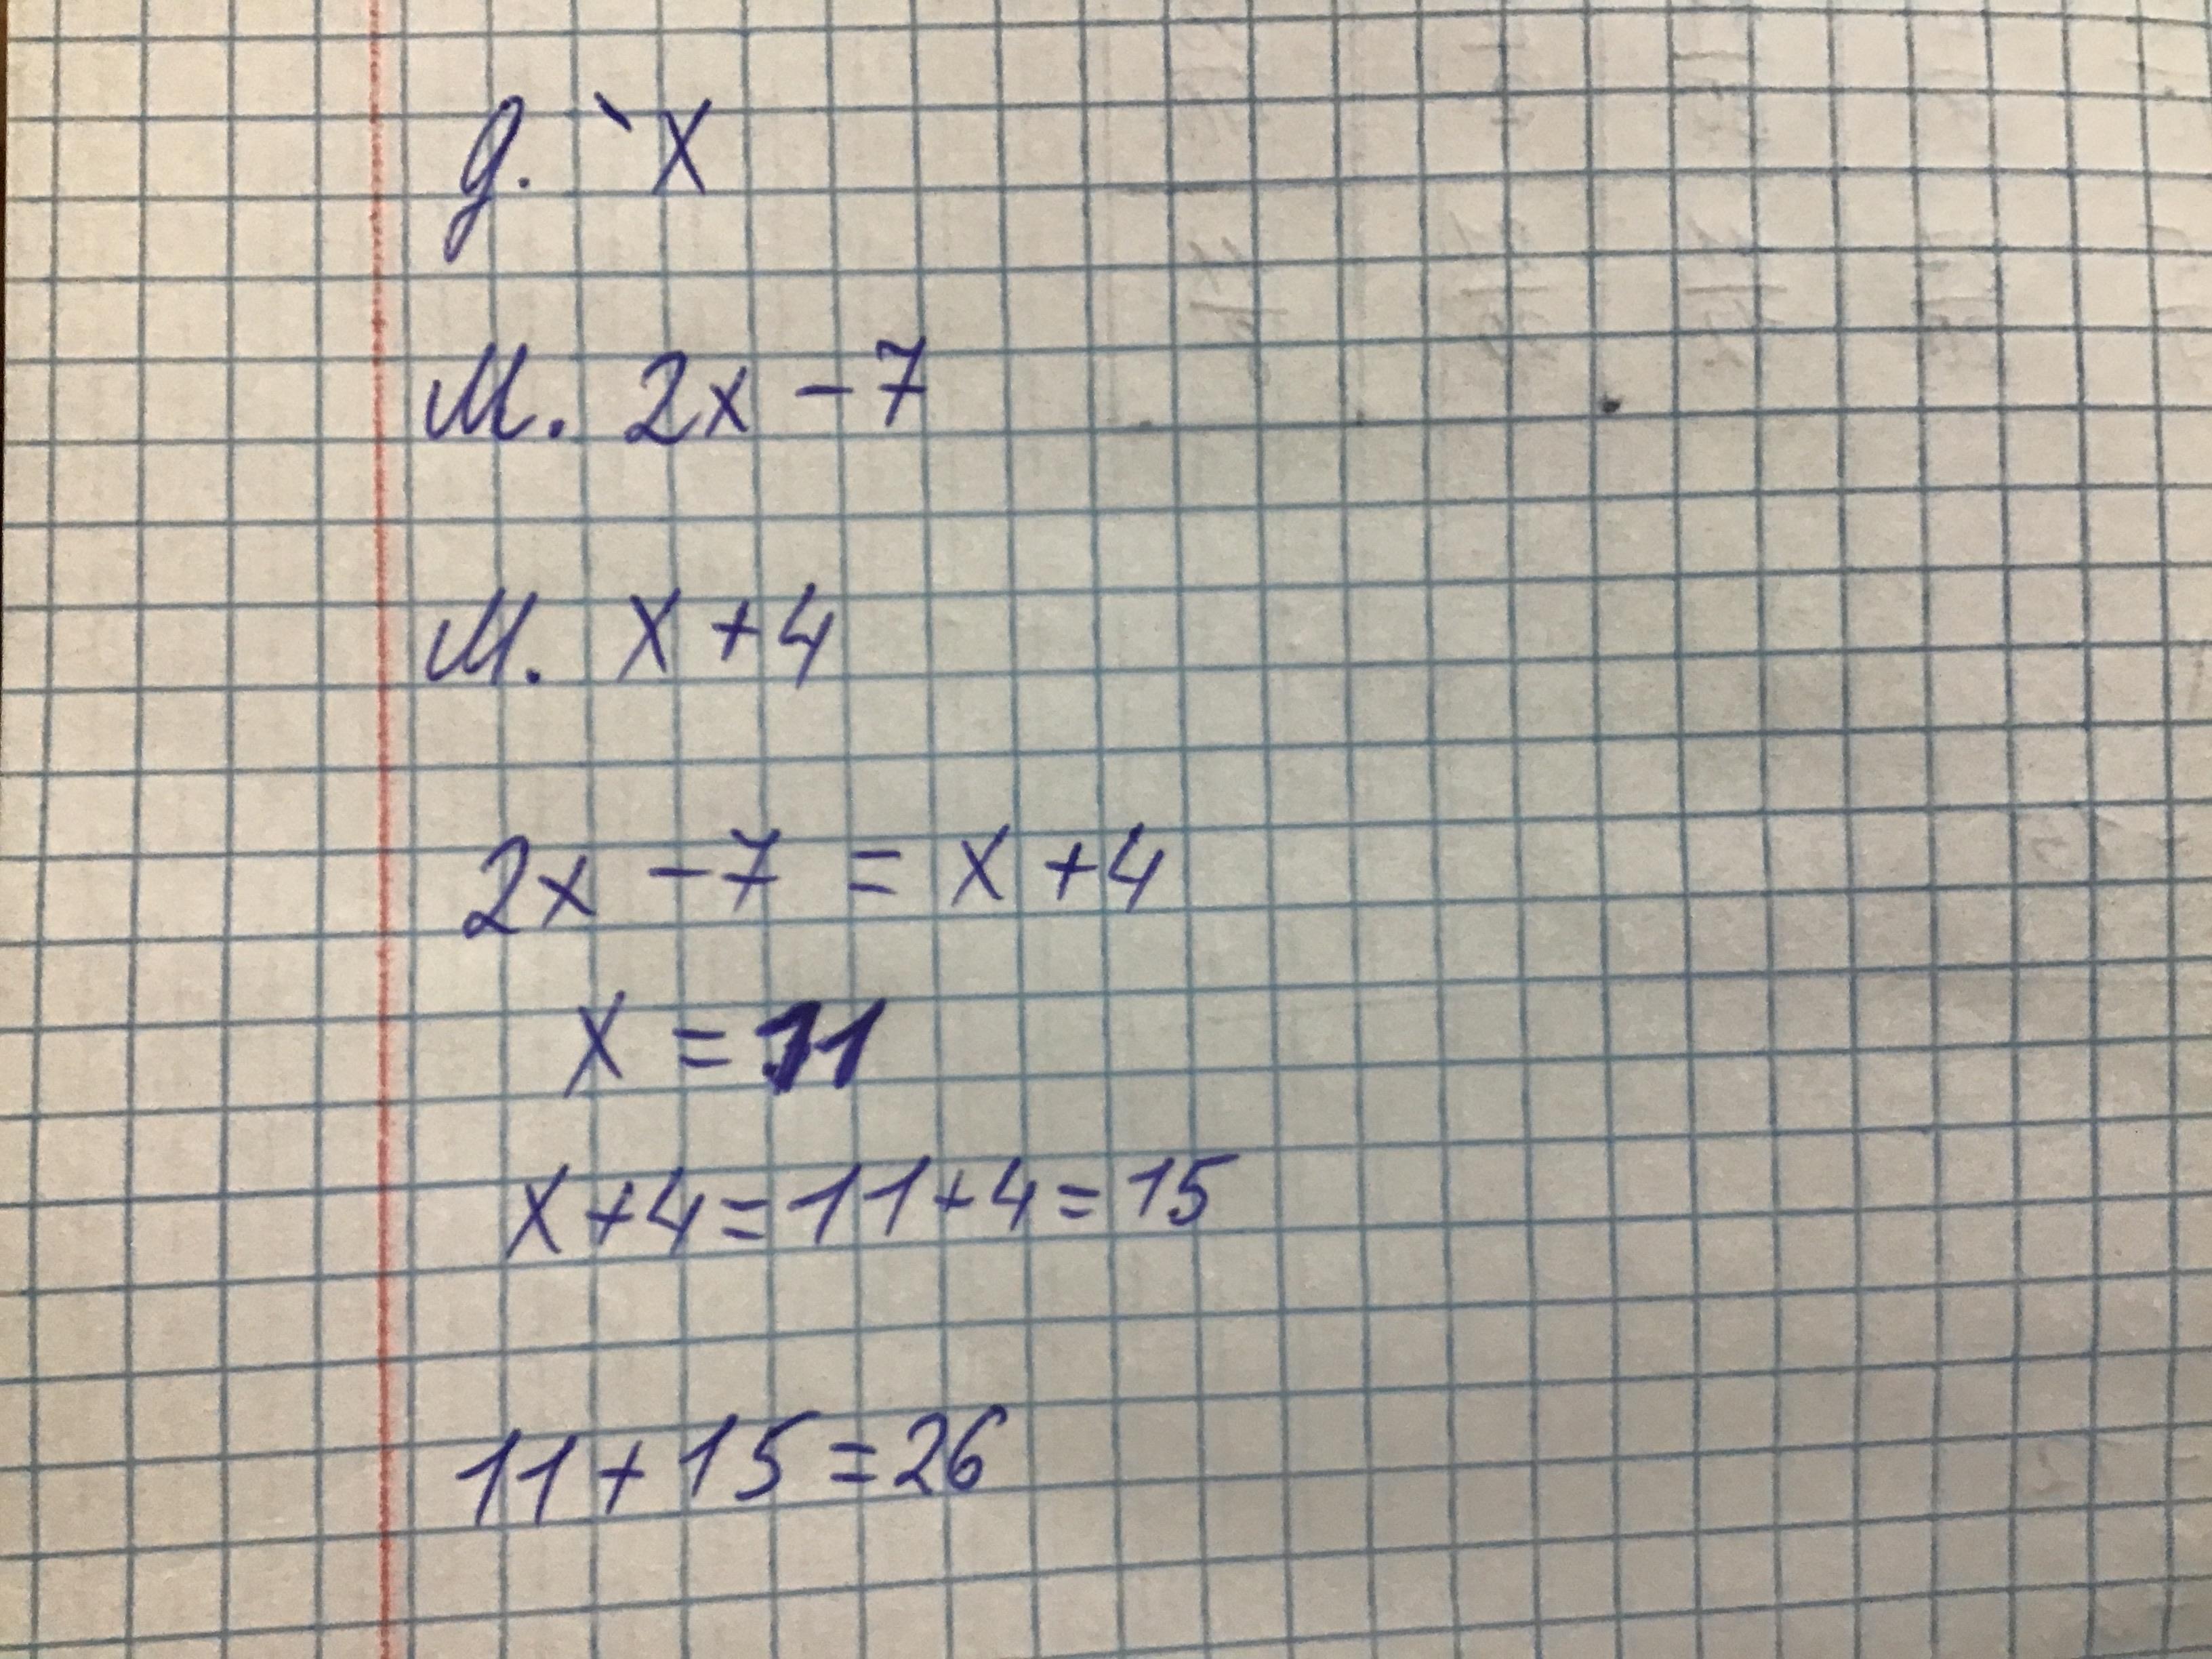 д. x
М. 2x - 7
М. x + 4
2x - 7 = x + 4
x = 11
x + 4 = 11 + 4 = 15
11 + 15 = 26